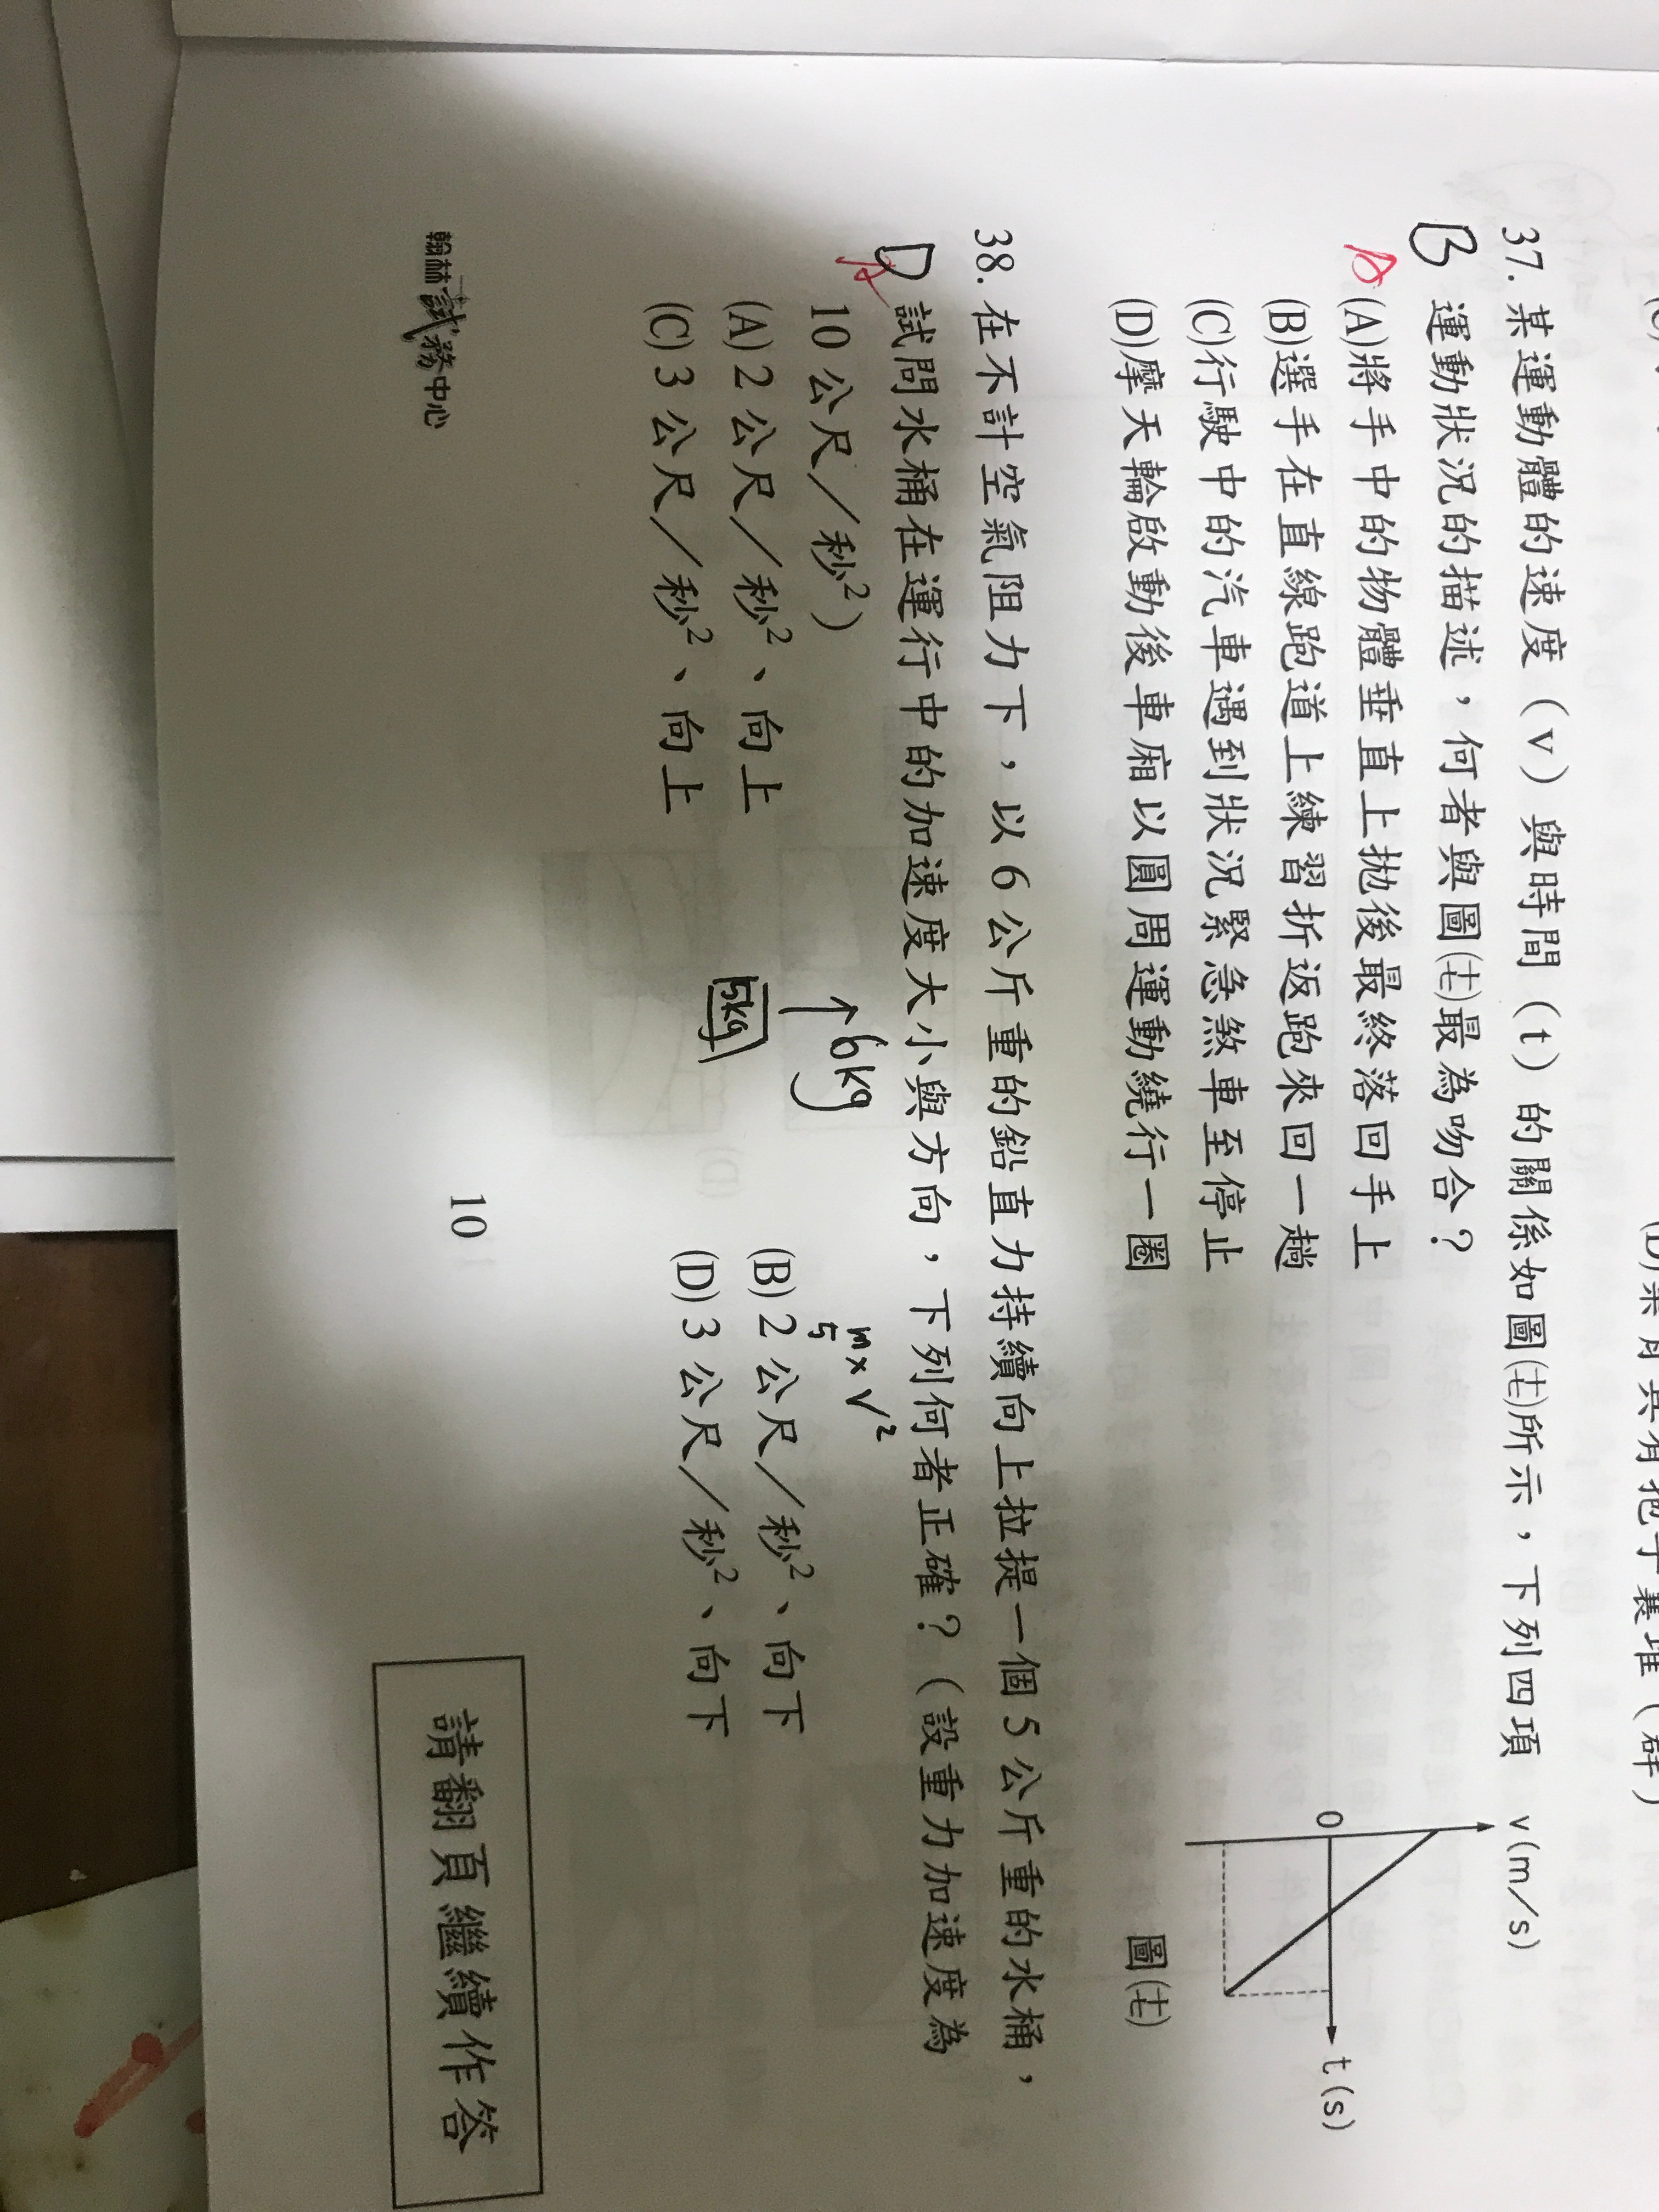 37. 某運動體的速度（v）與時間（t）的關係如圖(十七)所示，下列四項
B 運動狀況的描述，何者與圖(十七)最為吻合？
A (A)將手中的物體垂直上拋後最終落回手上
(B)選手在直線跑道上練習折返跑來回一趟
(C)行駛中的汽車遇到狀況緊急煞車至停止
(D)摩天輪啟動後車廂以圓周運動繞行一圈
v(m/s)
0
t(s)
圖(十七)
38. 在不計空氣阻力下，以6公斤重的鉛直力持續向上拉提一個5公斤重的水桶，
D 試問水桶在運行中的加速度大小與方向，下列何者正確？（設重力加速度為
A
10公尺／秒²）
m×v²
5
↑6kg
5kg
(A)2公尺／秒²、向上 (B)2公尺／秒²、向下
(C)3公尺／秒²、向上 (D)3公尺／秒²、向下
翰林試務中心
10
請翻頁繼續作答